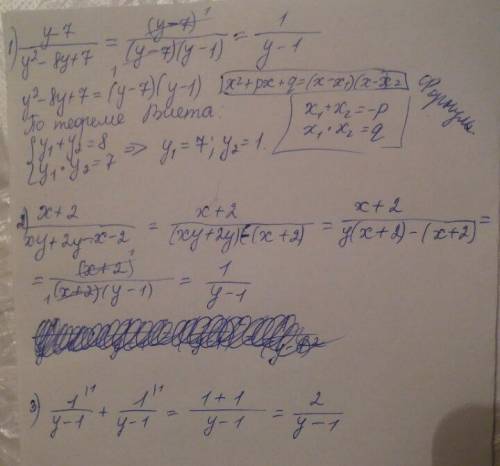 1) (y-7)/(y²-8y+7) = (y-7)¹/((y-7)(y-1)) = 1/(y-1)
y²-8y+7 = ¹(y-7)(y-1) x²+px+q=(x-x₁)(x-x₂ формула
По теореме Виета:
{y₁+y₂=8 => y₁=7; y₂=1. x₁+x₂=-p
{y₁·y₂=7 x₁·x₂=q
2) (x+2)/(xy+2y-x-2) = (x+2)/((xy+2y)-(x+2)) = (x+2)/(y(x+2)-(x+2)) =
= (x+2)¹/(₁(x+2)(y-1)) = 1/(y-1)
3) 1^{\1}/(y-1) + 1^{\1}/(y-1) = (1+1)/(y-1) = 2/(y-1)